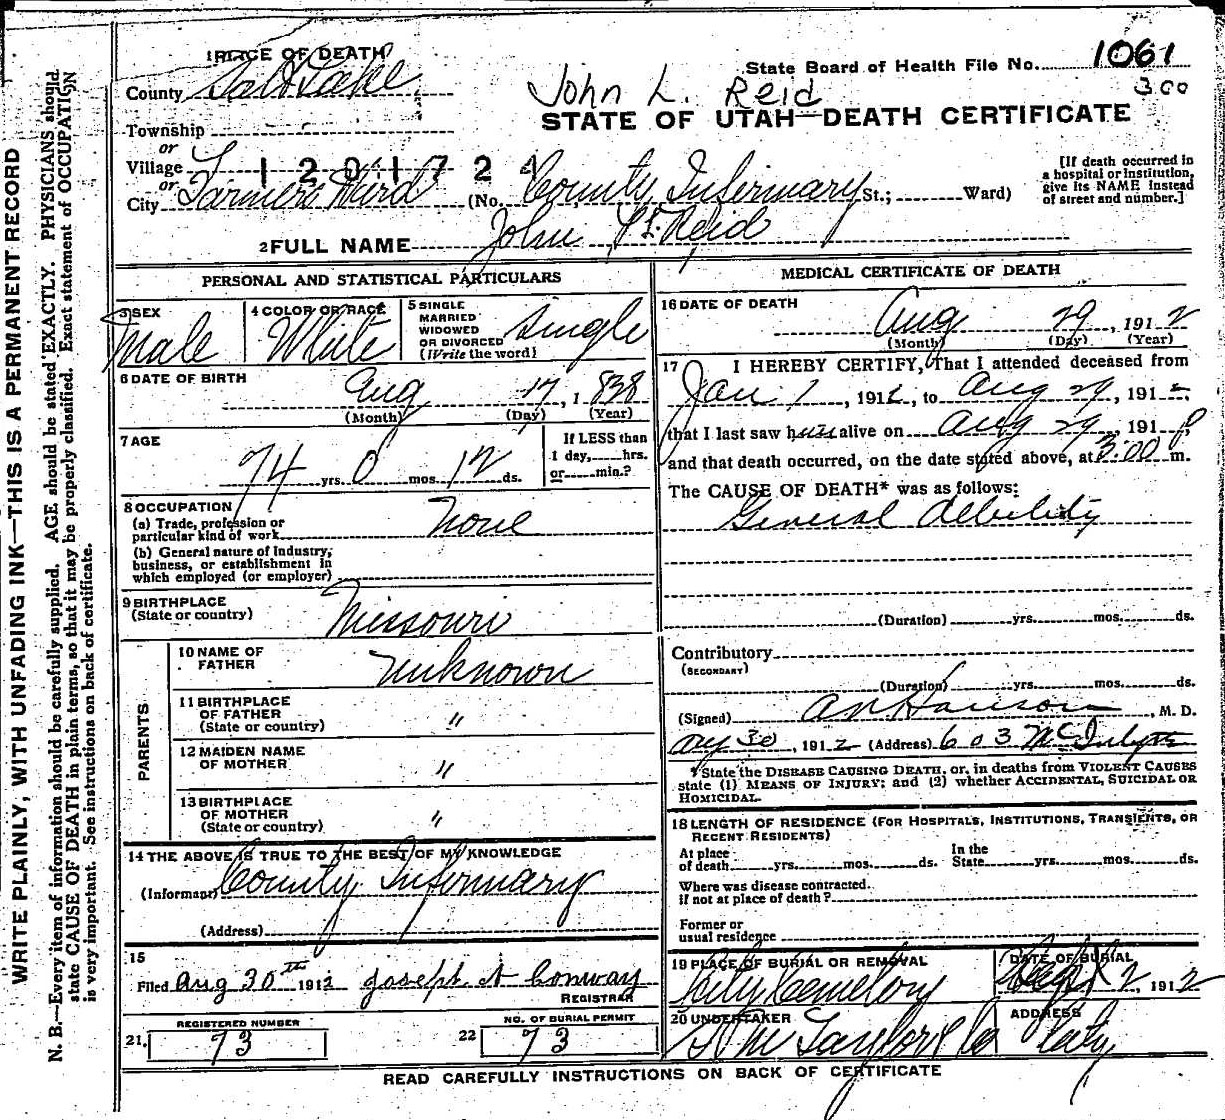 WRITE PLAINLY, WITH UNFADING INK—THIS IS A PERMANENT RECORD
N. B.—Every item of information should be carefully supplied. AGE should be stated EXACTLY. PHYSICIANS should
state CAUSE OF DEATH in plain terms, so that it may be properly classified. Exact statement of OCCUPATION
is very important. See instructions on back of certificate.
1 PLACE OF DEATH
County Salt Lake
Township
or
Village
or
City Farmers Ward (No. County Infirmary St.; Ward)
1201724
State Board of Health File No. 1061
300
John L. Reid
STATE OF UTAH—DEATH CERTIFICATE
[If death occurred in
a hospital or institution,
give its NAME instead
of street and number.]
2 FULL NAME John Reid
PERSONAL AND STATISTICAL PARTICULARS
3 SEX
Male
4 COLOR OR RACE
White
5 SINGLE
MARRIED
WIDOWED
OR DIVORCED
(Write the word)
Single
6 DATE OF BIRTH
Aug 17, 1838
(Month) (Day) (Year)
7 AGE
74 yrs. 0 mos. 12 ds.
If LESS than
1 day, hrs.
or min.?
8 OCCUPATION
(a) Trade, profession or
particular kind of work None
(b) General nature of industry,
business, or establishment in
which employed (or employer)
9 BIRTHPLACE
(State or country) Missouri
PARENTS
10 NAME OF
FATHER Unknown
11 BIRTHPLACE
OF FATHER
(State or country) "
12 MAIDEN NAME
OF MOTHER "
13 BIRTHPLACE
OF MOTHER
(State or country) "
14 THE ABOVE IS TRUE TO THE BEST OF MY KNOWLEDGE
(Informant) County Infirmary
(Address)
15
Filed Aug 30th 1912 Joseph A Conway
REGISTRAR
REGISTERED NUMBER
21. 73
NO. OF BURIAL PERMIT
22 73
MEDICAL CERTIFICATE OF DEATH
16 DATE OF DEATH
Aug 29, 1912
(Month) (Day) (Year)
17 I HEREBY CERTIFY, That I attended deceased from
Jan 1, 1912, to Aug 29, 1912,
that I last saw him alive on Aug 29, 191
and that death occurred, on the date stated above, at 3:00 P m.
The CAUSE OF DEATH* was as follows:
General debility
(Duration) yrs. mos. ds.
Contributory
(SECONDARY)
(Duration) yrs. mos. ds.
(Signed) A N Hanson, M. D.
Aug 30, 1912 (Address) 603 McIntyre
* State the DISEASE CAUSING DEATH, or, in deaths from VIOLENT CAUSES
state (1) MEANS OF INJURY; and (2) whether ACCIDENTAL, SUICIDAL OR
HOMICIDAL.
18 LENGTH OF RESIDENCE (FOR HOSPITALS, INSTITUTIONS, TRANSIENTS, OR
RECENT RESIDENTS)
At place
of death yrs. mos. ds.
In the
State yrs. mos. ds.
Where was disease contracted,
if not at place of death?
Former or
usual residence
19 PLACE OF BURIAL OR REMOVAL
City Cemetery
DATE OF BURIAL
Sept 2, 1912
20 UNDERTAKER
S M Taylor & Co
ADDRESS
City
READ CAREFULLY INSTRUCTIONS ON BACK OF CERTIFICATE